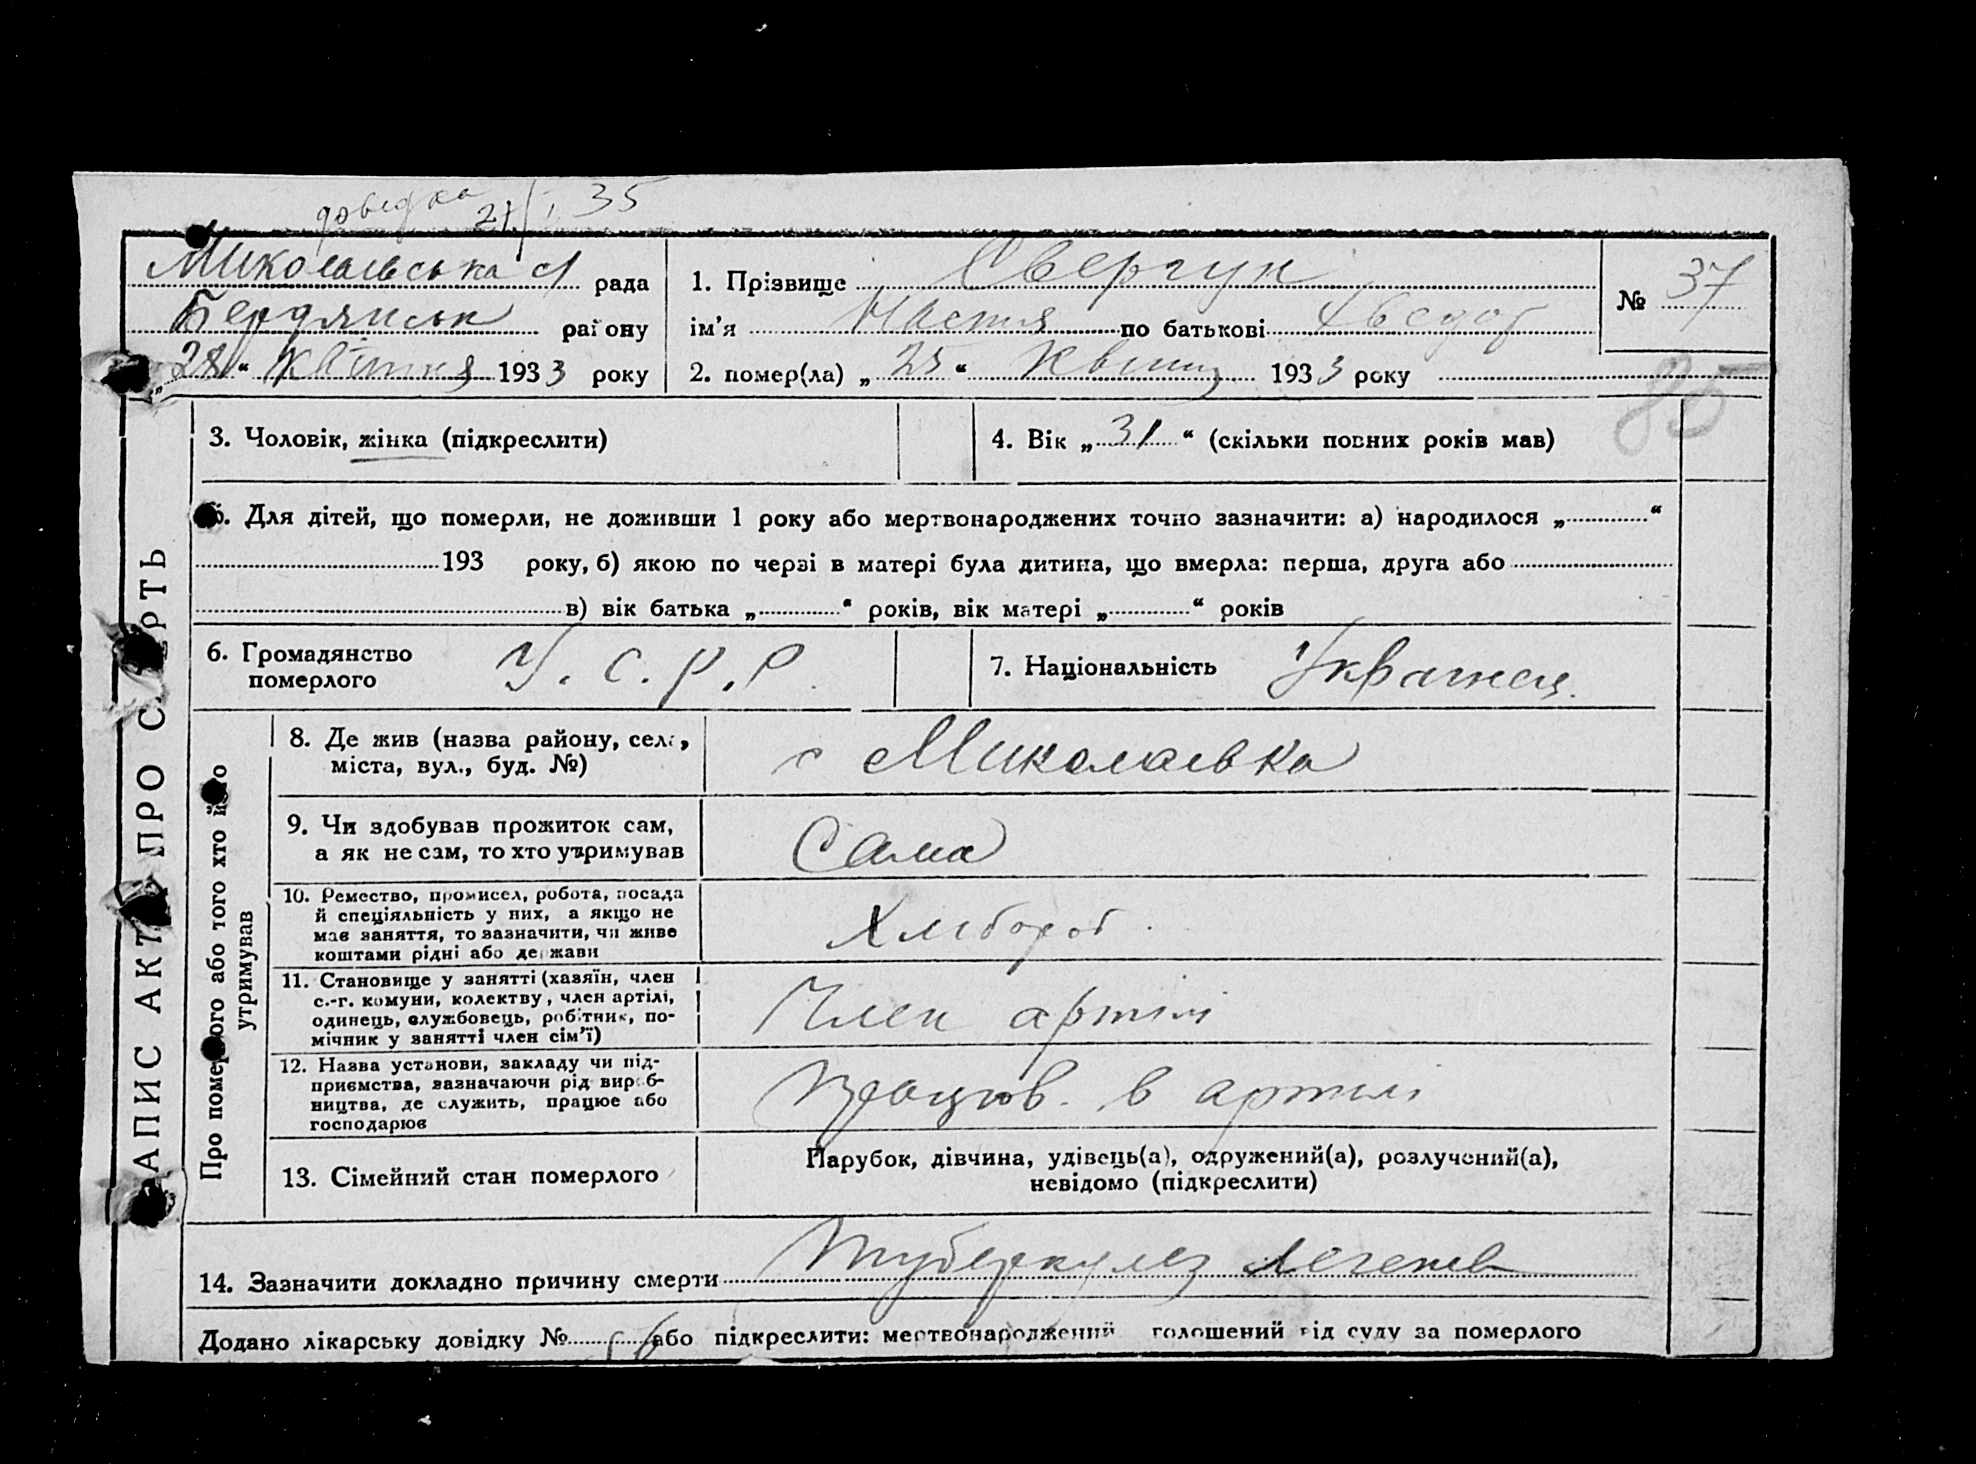 довідка 27/I 35
Миколаївська с/ рада
Бердянськ району
„28“ квітня 1933 року
1. Прізвище Свергун
ім’я Настя по батькові
2. помер(ла) „25“ квітня 1933 року
№ 37
85
3. Чоловік, жінка (підкреслити)
4. Вік „31“ (скільки повних років мав)
5. Для дітей, що померли, не доживши 1 року або мертвонароджених точно зазначити: а) народилося „ “
193 року, б) якою по черзі в матері була дитина, що вмерла: перша, друга або
в) вік батька „ “ років, вік матері „ “ років
6. Громадянство
померлого
У. С. Р. Р.
7. Національність
ЗАПИС АКТУ ПРО СМЕРТЬ
Про померлого або того хто його
утримував
8. Де жив (назва району, села,
міста, вул., буд. №)
с Миколаївка
9. Чи здобував прожиток сам,
а як не сам, то хто утримував
Сама
10. Ремество, промисел, робота, посада
й спеціяльність у них, а якщо не
має заняття, то зазначити, чи живе
коштами рідні або держави
Хлібороб
11. Становище у занятті (хазяїн, член
с.-г. комуни, колективу, член артілі,
одинець, службовець, робітник, по-
мічник у занятті член сім’ї)
Член артілі
12. Назва установи, закладу чи під-
приємства, зазначаючи рід вироб-
ництва, де служить, працює або
господарює
Працюв. в артілі
13. Сімейний стан померлого
Парубок, дівчина, удівець(а), одружений(а), розлучений(а),
невідомо (підкреслити)
14. Зазначити докладно причину смерти Туберкульоз легенев
Додано лікарську довідку № або підкреслити: мертвонароджений голошений від суду за померлого